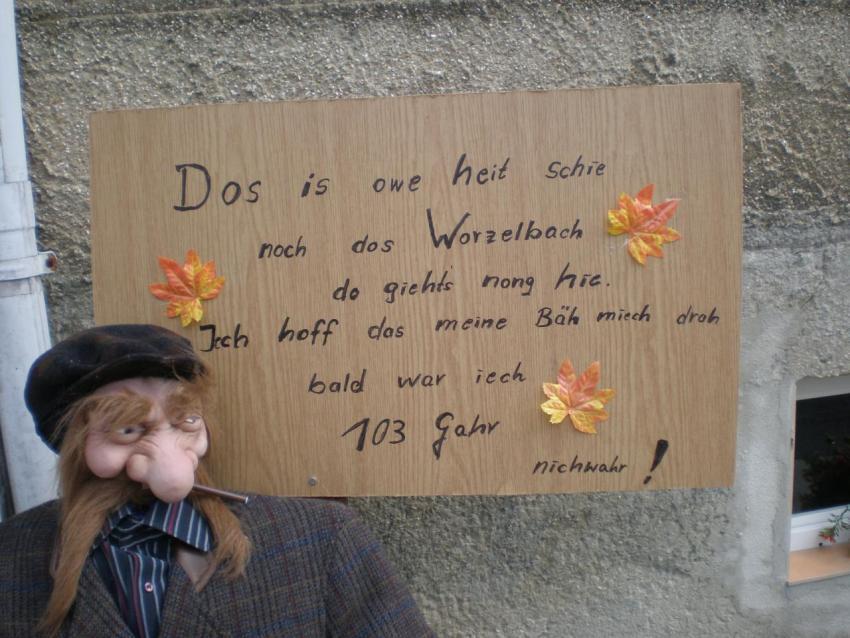 Dos is owe heit schie
noch dos Worzelbach
do gieht's nong hie.
Jech hoff das meine Bäh miech droh
bald war iech
103 Gahr
nichwahr !